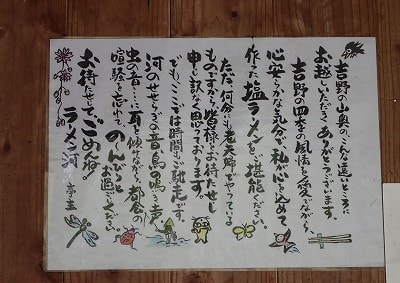 吉野の山奥のこんな遠いところに
お越しいただきありがとうございます。
吉野の四季の風情を愛でながら、
心安らかな気分で、私が心を込めて
作った塩ラーメンをご堪能ください。
ただ何分にも老夫婦でやっている
ものですから皆様にお待たせし
申し訳なく思っております。
でも、ここでは時間もご馳走です。
河のせせらぎの音、鳥の鳴き声、
虫の音…に耳を傾けながら、都会の
喧騒を忘れて、の〜んびりと
お過ごしください。
お待たせして、ごめんね!
ラーメン河 亭主